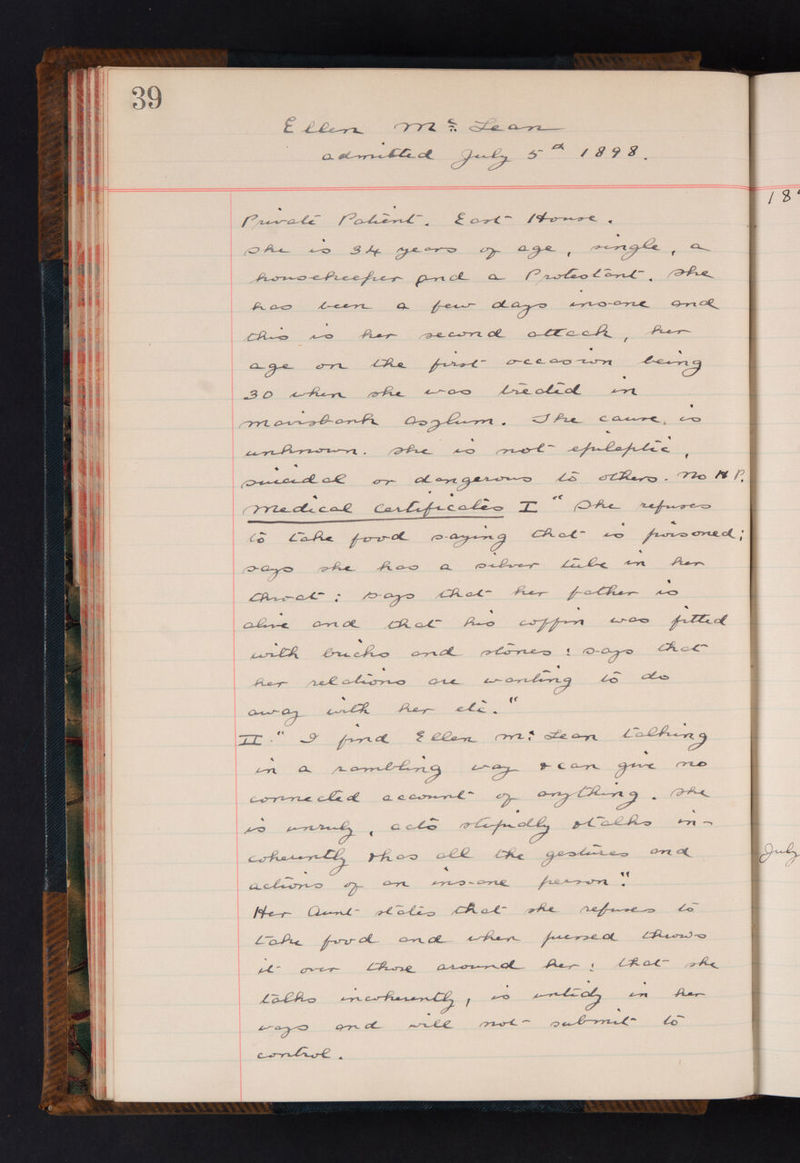 39
Ellen Mc Lean
admitted July 5th 1898.
Private Patient. East House.
She is 34 years of age, single, a
housekeeper and a Protestant. She
has been a few days insane and
this is her second attack, her
age on the first occasion being
30 when she was treated in
Mavisbank Asylum. The cause, is
unknown. She is not epileptic,
suicidal or dangerous to others. No H P.
Medical Certificates I "She refuses
to take food saying that is poisoned;
says she has a silver tube in her
throat: says that her father is
alive and that his coffin was fitted
with bricks and stones: says that
her relations are wanting to do
away with her etc."
II. "I find Ellen Mc Lean talking
in a rambling way & can give no
connected account of anything. She
is unruly, acts stupidly & talks in-
coherently & has all the gestures and
actions of an insane person."
Her Aunt states that she refuses to
take food and when pressed throws
it over those around her: that she
talks incoherently, is untidy in her
ways and will not submit to
control.
189
July